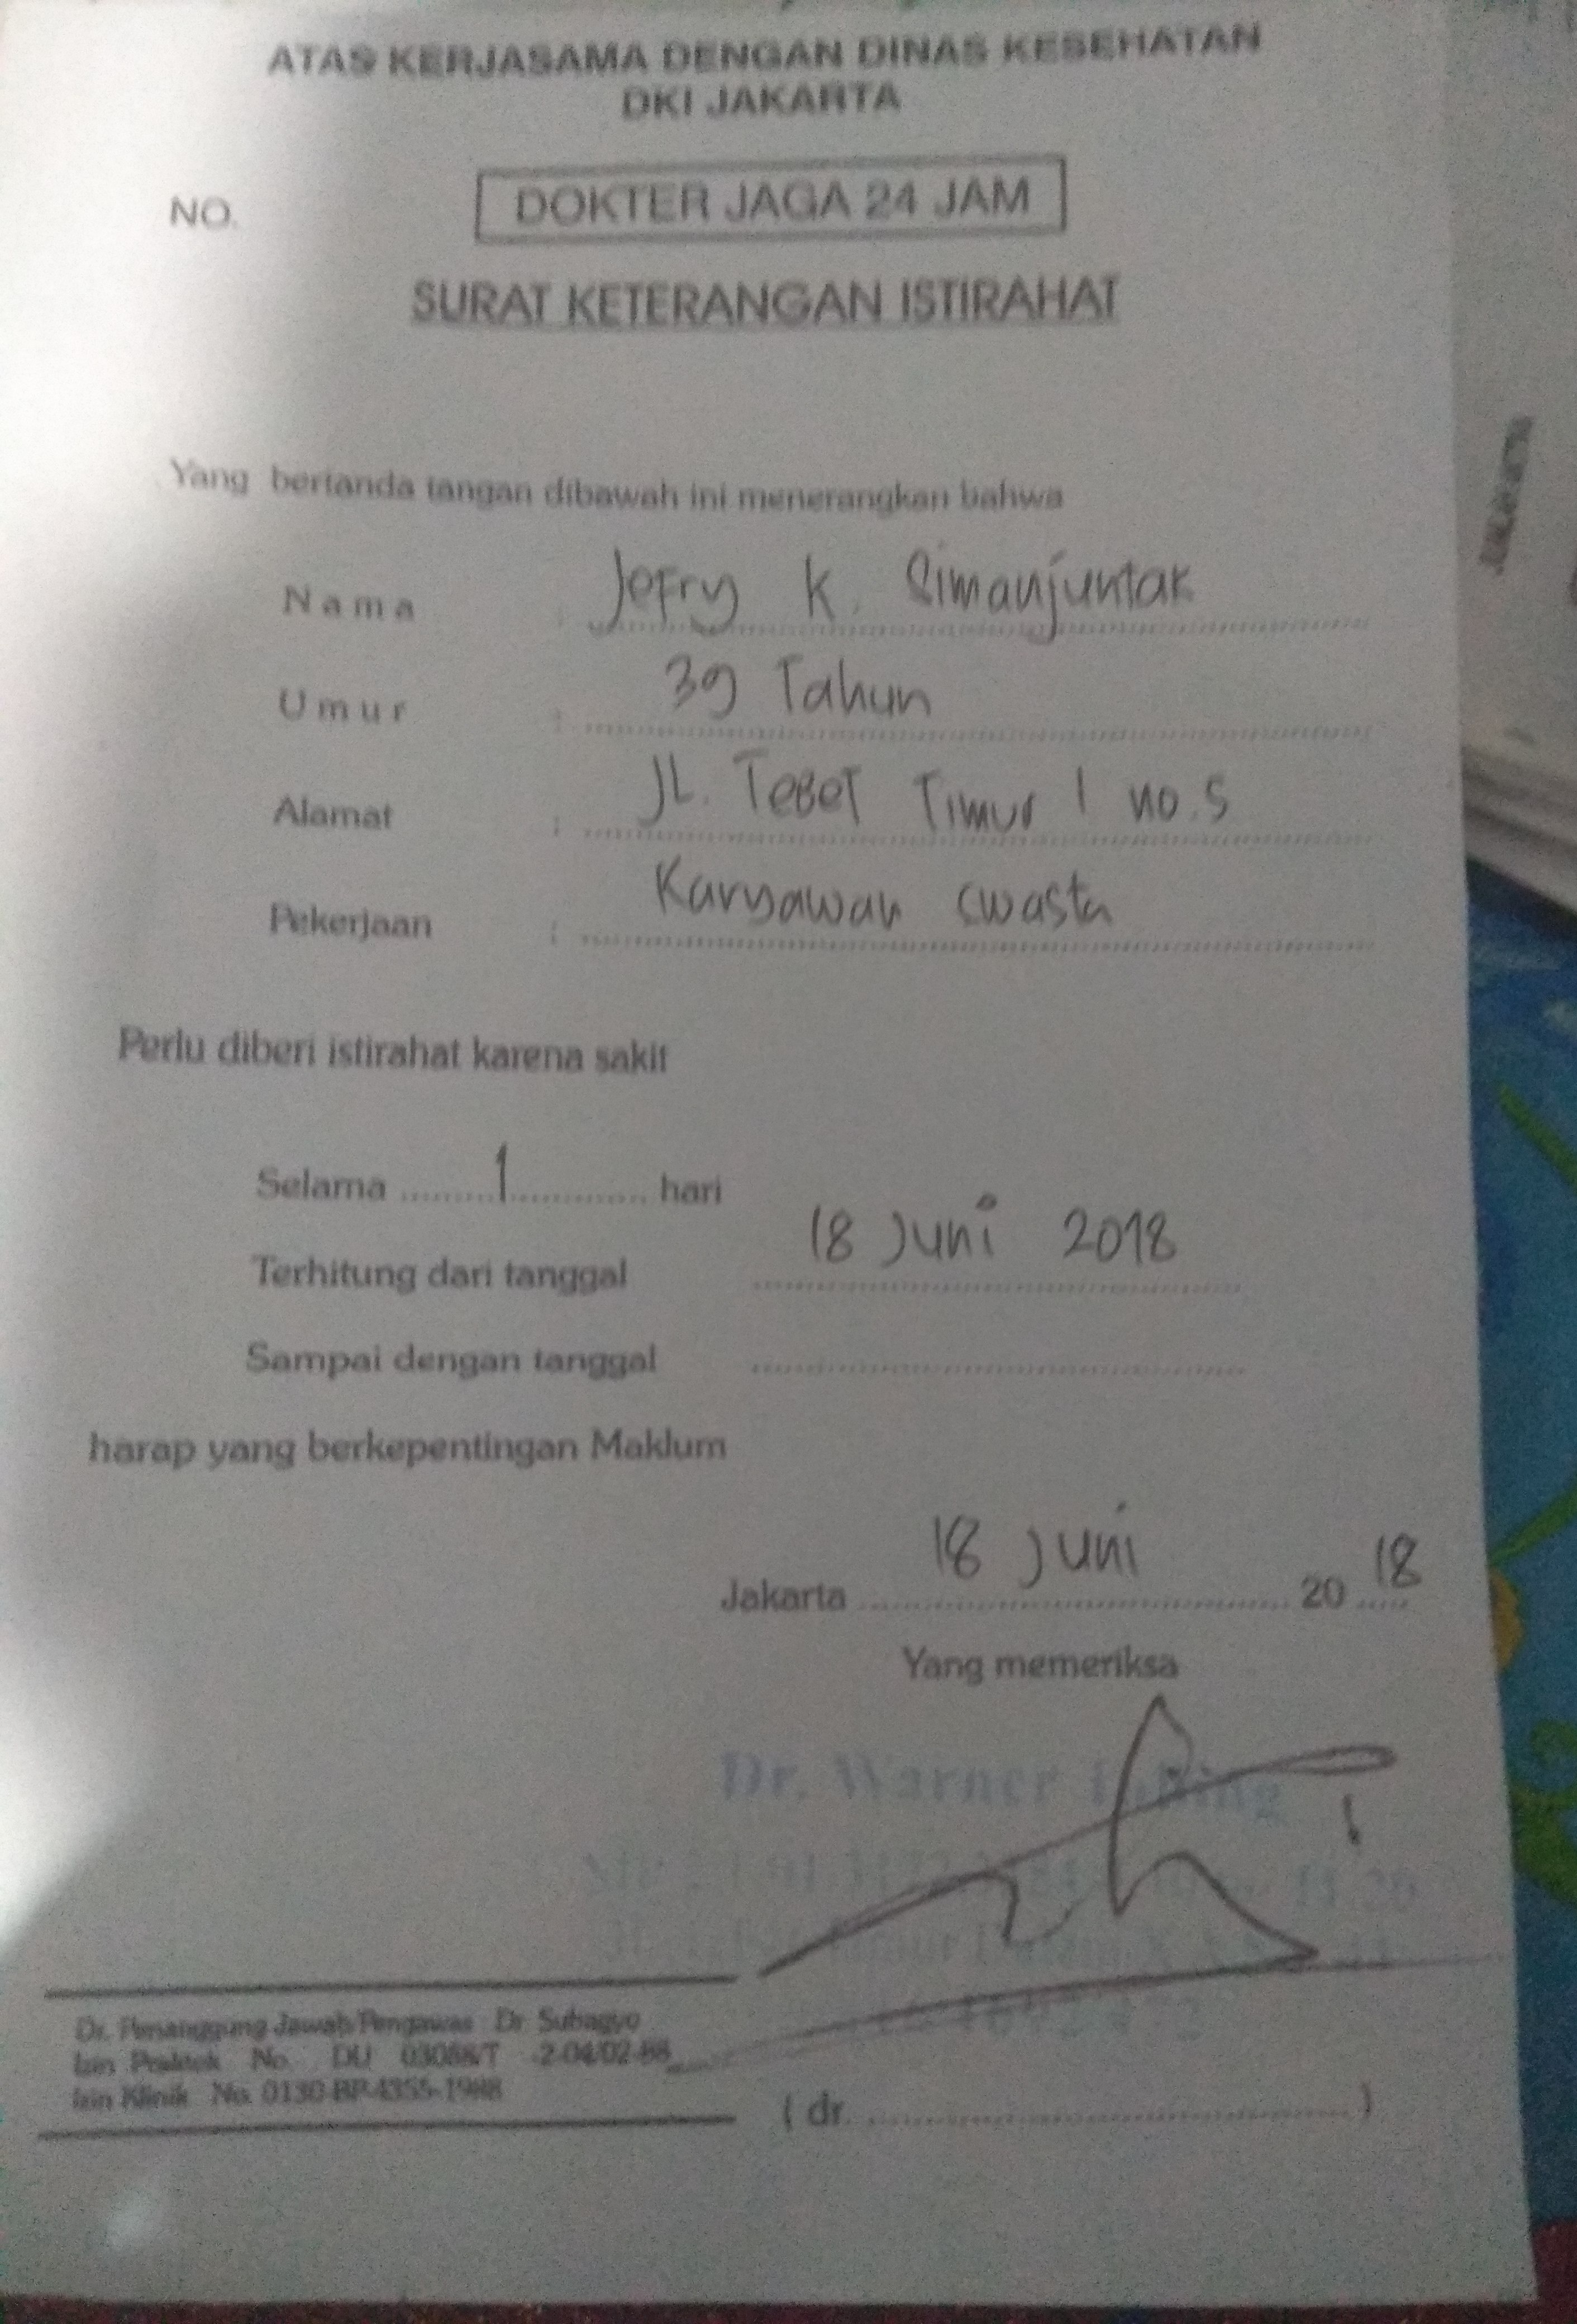 ATAS KERJASAMA DENGAN DINAS KESEHATAN
DKI JAKARTA
NO.
DOKTER JAGA 24 JAM
SURAT KETERANGAN ISTIRAHAT
Yang bertanda tangan dibawah ini menerangkan bahwa
Nama : Jefry K. Simanjuntak
Umur : 39 Tahun
Alamat : JL. Tebet Timur 1 no.5
Pekerjaan : Karyawan swasta
Perlu diberi istirahat karena sakit
Selama 1 hari
Terhitung dari tanggal 18 Juni 2018
Sampai dengan tanggal
harap yang berkepentingan Maklum
Jakarta 18 Juni 20 18
Yang memeriksa
Dr. Warner
Dr. Penanggung Jawab/Pengawas Dr Subagyo
Izin Praktek No. DU
Izin Klinik No. 0130-BP-4355-1988
( dr. )